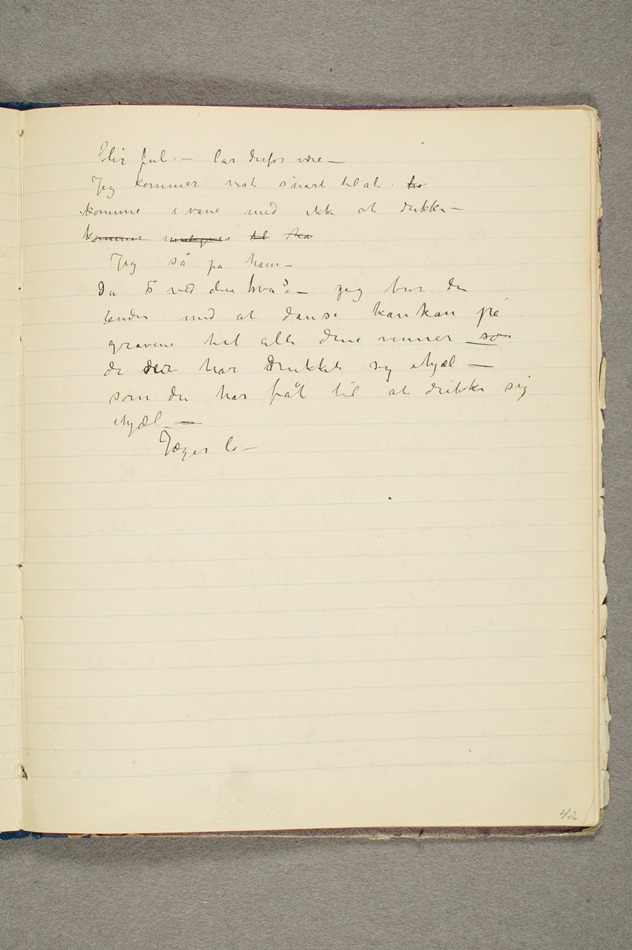 blir ful. — lar derfor være —
Jeg kommer nok snart til at
komme i vane med ikk at drikke —
Jeg så på ham —
Du å ved du hva? — jeg tror du
ender med at danse kankan på
gravene til alle dine venner so
de der har drukket sig ihjæl —
som du har fåt til at drikke sig
ihjæl —
Jæger lo —
42